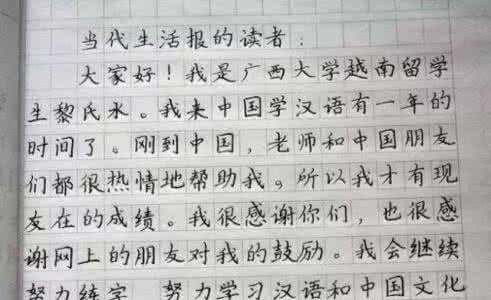 当代生活报的读者：
大家好！我是广西大学越南留学
生黎氏水。我来中国学汉语有一年的
时间了。刚到中国，老师和中国朋友
们都很热情地帮助我。所以我才有现
友在的成绩。我很感谢你们，也很感
谢网上的朋友对我的鼓励。我会继续
努力练字，努力学习汉语和中国文化